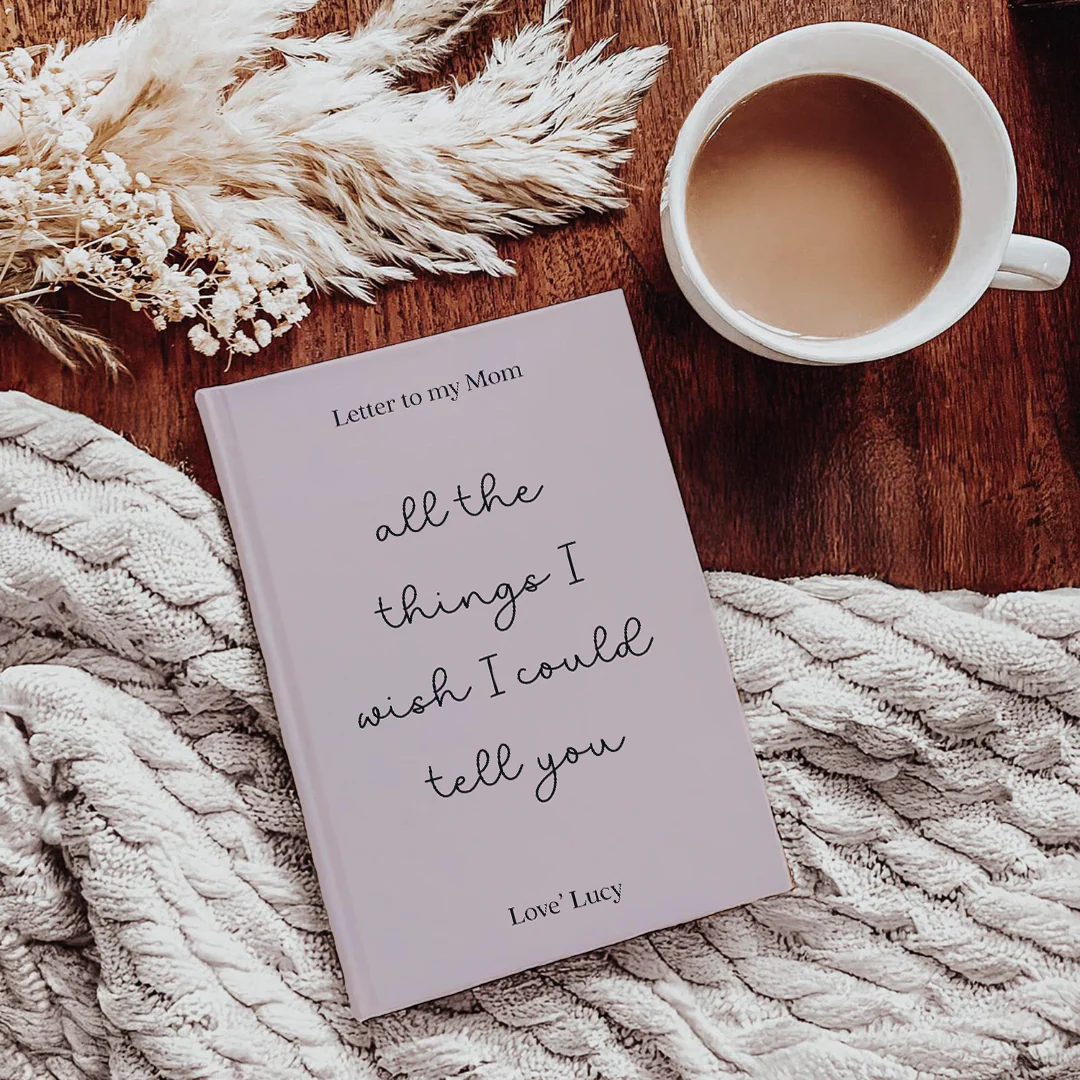 Letter to my Mom
all the
things I
wish I could
tell you
Love' Lucy